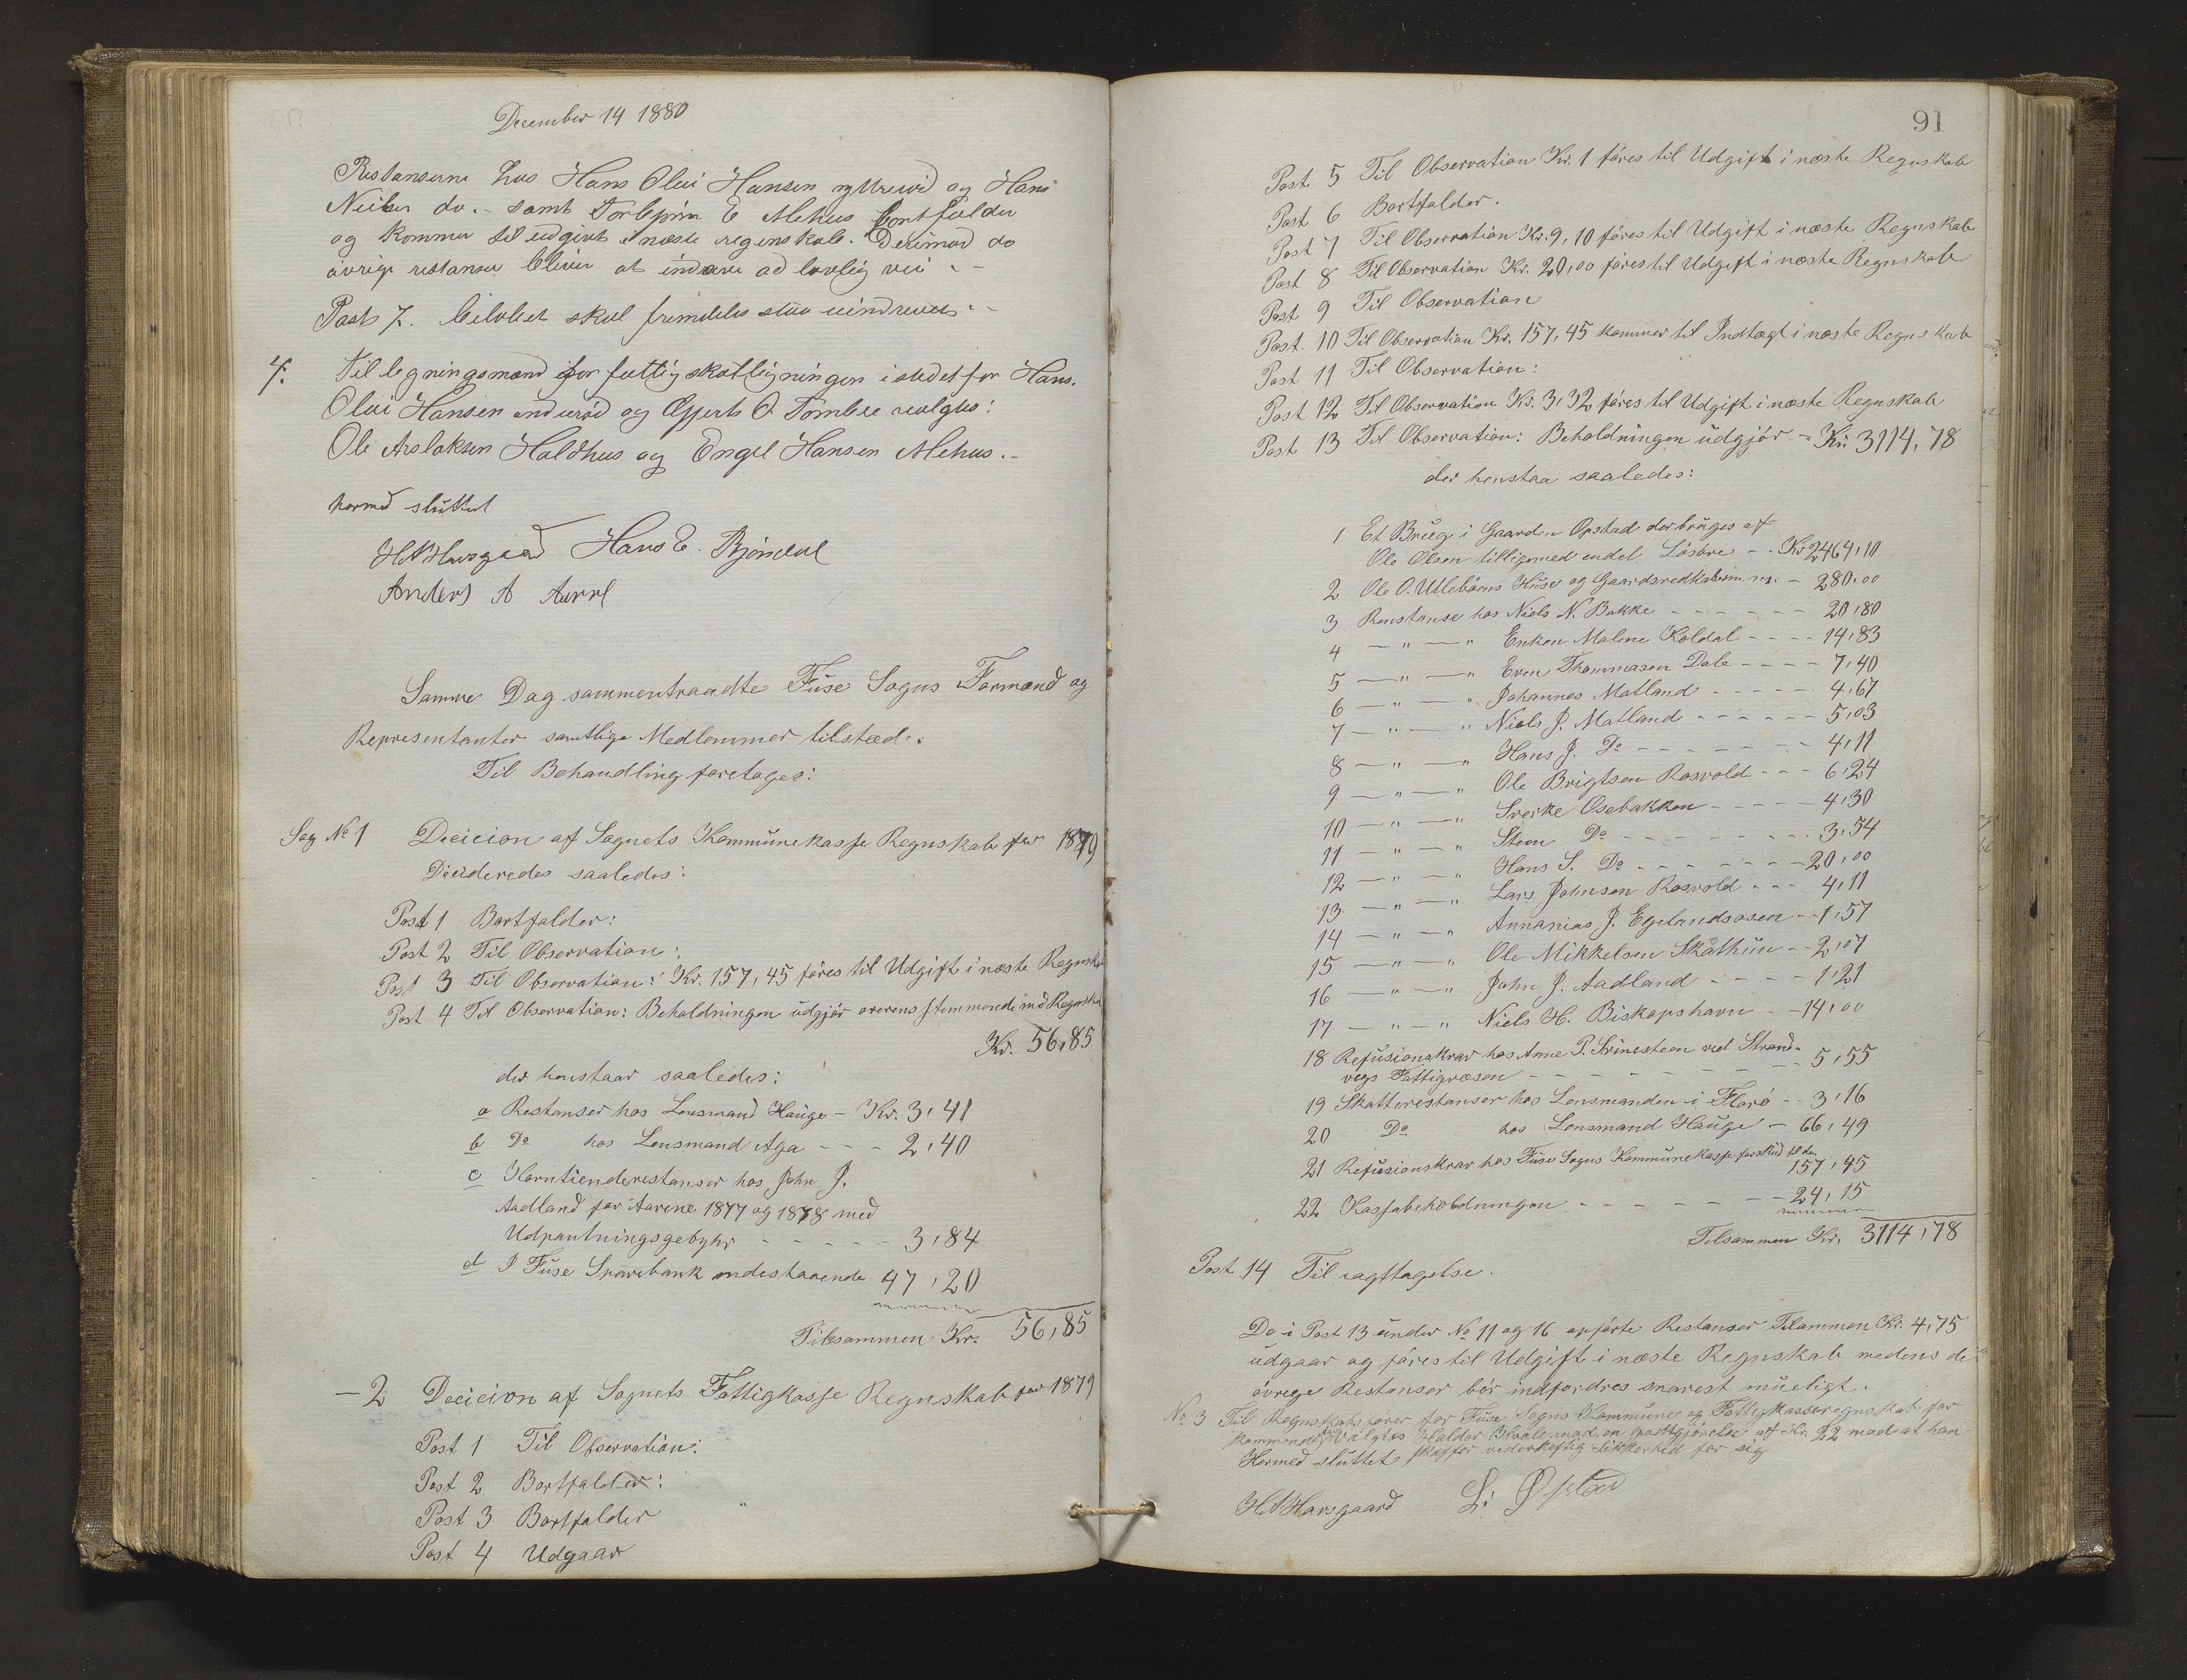 December 14 1880
Restanserne hos Hans Olai Hansen og Hans
Neiber do. – samt Torbjörn E Alehus bortfalder
og kommer til udgivt i næste regnskab. Derimod de
øvrige restanser bliver at inddrive ad lovlig vei –
Post 7. skal fremdeles staa uindrevet –
4. Til legningsmænd for fattigskatligningen istedet for Hans
Olai Hansen og O. Tombre valgtes:
Ole Aslaksen Holdhus og Engel Hansen Alehus. –
hermed sluttet
H A Havsgaard Hans E. Bjöndal
Anders A
Samme Dag sammentraadte Fuse Sogns Formænd og
Representanter samtlige Medlemmer tilstæde.
Til Behandling foretages:
Sag No 1 Decicion af Sognets Kommunekasse Regnskab for 1879
Decideredes saaledes:
Post 1 Bortfalder:
Post 2 Til Observation:
Post 3 Til Observation: Kr. 157,45 föres til Udgift i næste Regnskab
Post 4 Til Observation: Beholdningen udgjör overensstemmende med Regnskab
Kr. 56,85
der henstaar saaledes:
a Restanser hos Lensmand Hauge – Kr. 3,41
b Do hos Lensmand Aga – – – 2,40
c Korntienderestanser hos John J.
Aadland for Aarene 1877 og 1878 med
Udpantningsgebyhr – – – – – 3,84
d I Fuse Sparebank indestaaende 47,20
Tilsammen Kr. 56,85
– 2 Decicion af Sognets Fattigkasse Regnskab for 1879
Post 1 Til Observation:
Post 2 Bortfalder:
Post 3 Bortfalder
Post 4 Udgaar
91
Post 5 Til Observation Kr. 1 föres til Udgift i næste Regnskab
Post 6 Bortfalder.
Post 7 Til Observation Kr. 9,10 föres til Udgift i næste Regnskab
Post 8 Til Observation Kr. 20,00 föres til Udgift i næste Regnskab
Post 9 Til Observation
Post 10 Til Observation Kr. 157,45 kommer til Indtægt i næste Regnskab
Post 11 Til Observation:
Post 12 Til Observation Kr. 3,32 föres til Udgift i næste Regnskab
Post 13 Til Observation: Beholdningen udgjör – Kr. 3114,78
der henstaa saaledes:
1 Et Brug i Gaarden Opstad der bruges af
Ole Olsen tilligemed endel Lösöre – – Kr 2464,10
2 Ole O. Utleböens Huse og Gaardsredskaber m. m. – 280,00
3 Restanse hos Niels N. Bakke – – – – – – 20,80
4 — " — " Enken Malene Koldal – – – – 14,83
5 — " — " Even Thommasen Dale – – – – 7,40
6 — " — " Johannes Matland – – – – – 4,67
7 — " — " Niels J. Matland – – – – – – 5,03
8 — " — " Hans J. Do – – – – – – – 4,11
9 — " — " Ole Brigtsen Rosvold – – – 6,24
10 — " — " Sverke Osebakken – – – – – 4,30
11 — " — " Steen Do – – – – – – – – 3,54
12 — " — " Hans S. Do – – – – – – – 20,00
13 — " — " Lars Johnsen Rosvold – – – 4,11
14 — " — " Annanias J. Egelandsosen – – 1,57
15 — " — " Ole Mikkelsen Skåthun – – 2,07
16 — " — " John J. Aadland – – – – 1,21
17 — " — " Niels H. Biskopshavn – – 14,00
18 Refusionskrav hos Anne P. Svinesteen ved Strand-
vigs Fattigvæsen – – – – – – – – 5,55
19 Skatterestanser hos Lensmanden i Florö – – 3,16
20 Do hos Lensmand Hauge – 66,49
21 Refusionskrav hos Fuse Sogns Kommunekasse forskud til den
157,45
22 Kassabeholdningen – – – – – – – – 24,15
Tilsammen Kr. 3114,78
Post 14 Til iagttagelse.
De i Post 13 under No 11 og 16 opförte Restanser Tilsammen Kr. 4,75
udgaar og föres til Udgift i næste Regnskab medens de
övrige Restanser bör indfordres snarest mueligt.
No 3 Til Regnskabsförer for Fuse Sogns Kommune og Fattigkasseregnskab for
kommende valgtes Haldor med en godtgjörelse af Kr. 22 mod at han
Hermed sluttet skaffer vederheftig sikkerhed for sig
H A Havsgaard L: Øpstad